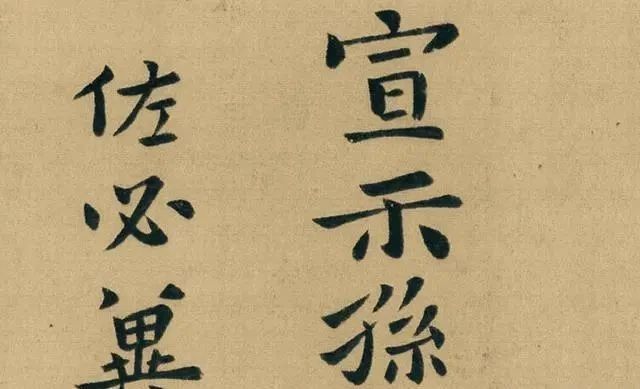 宣示孫
佐必冀